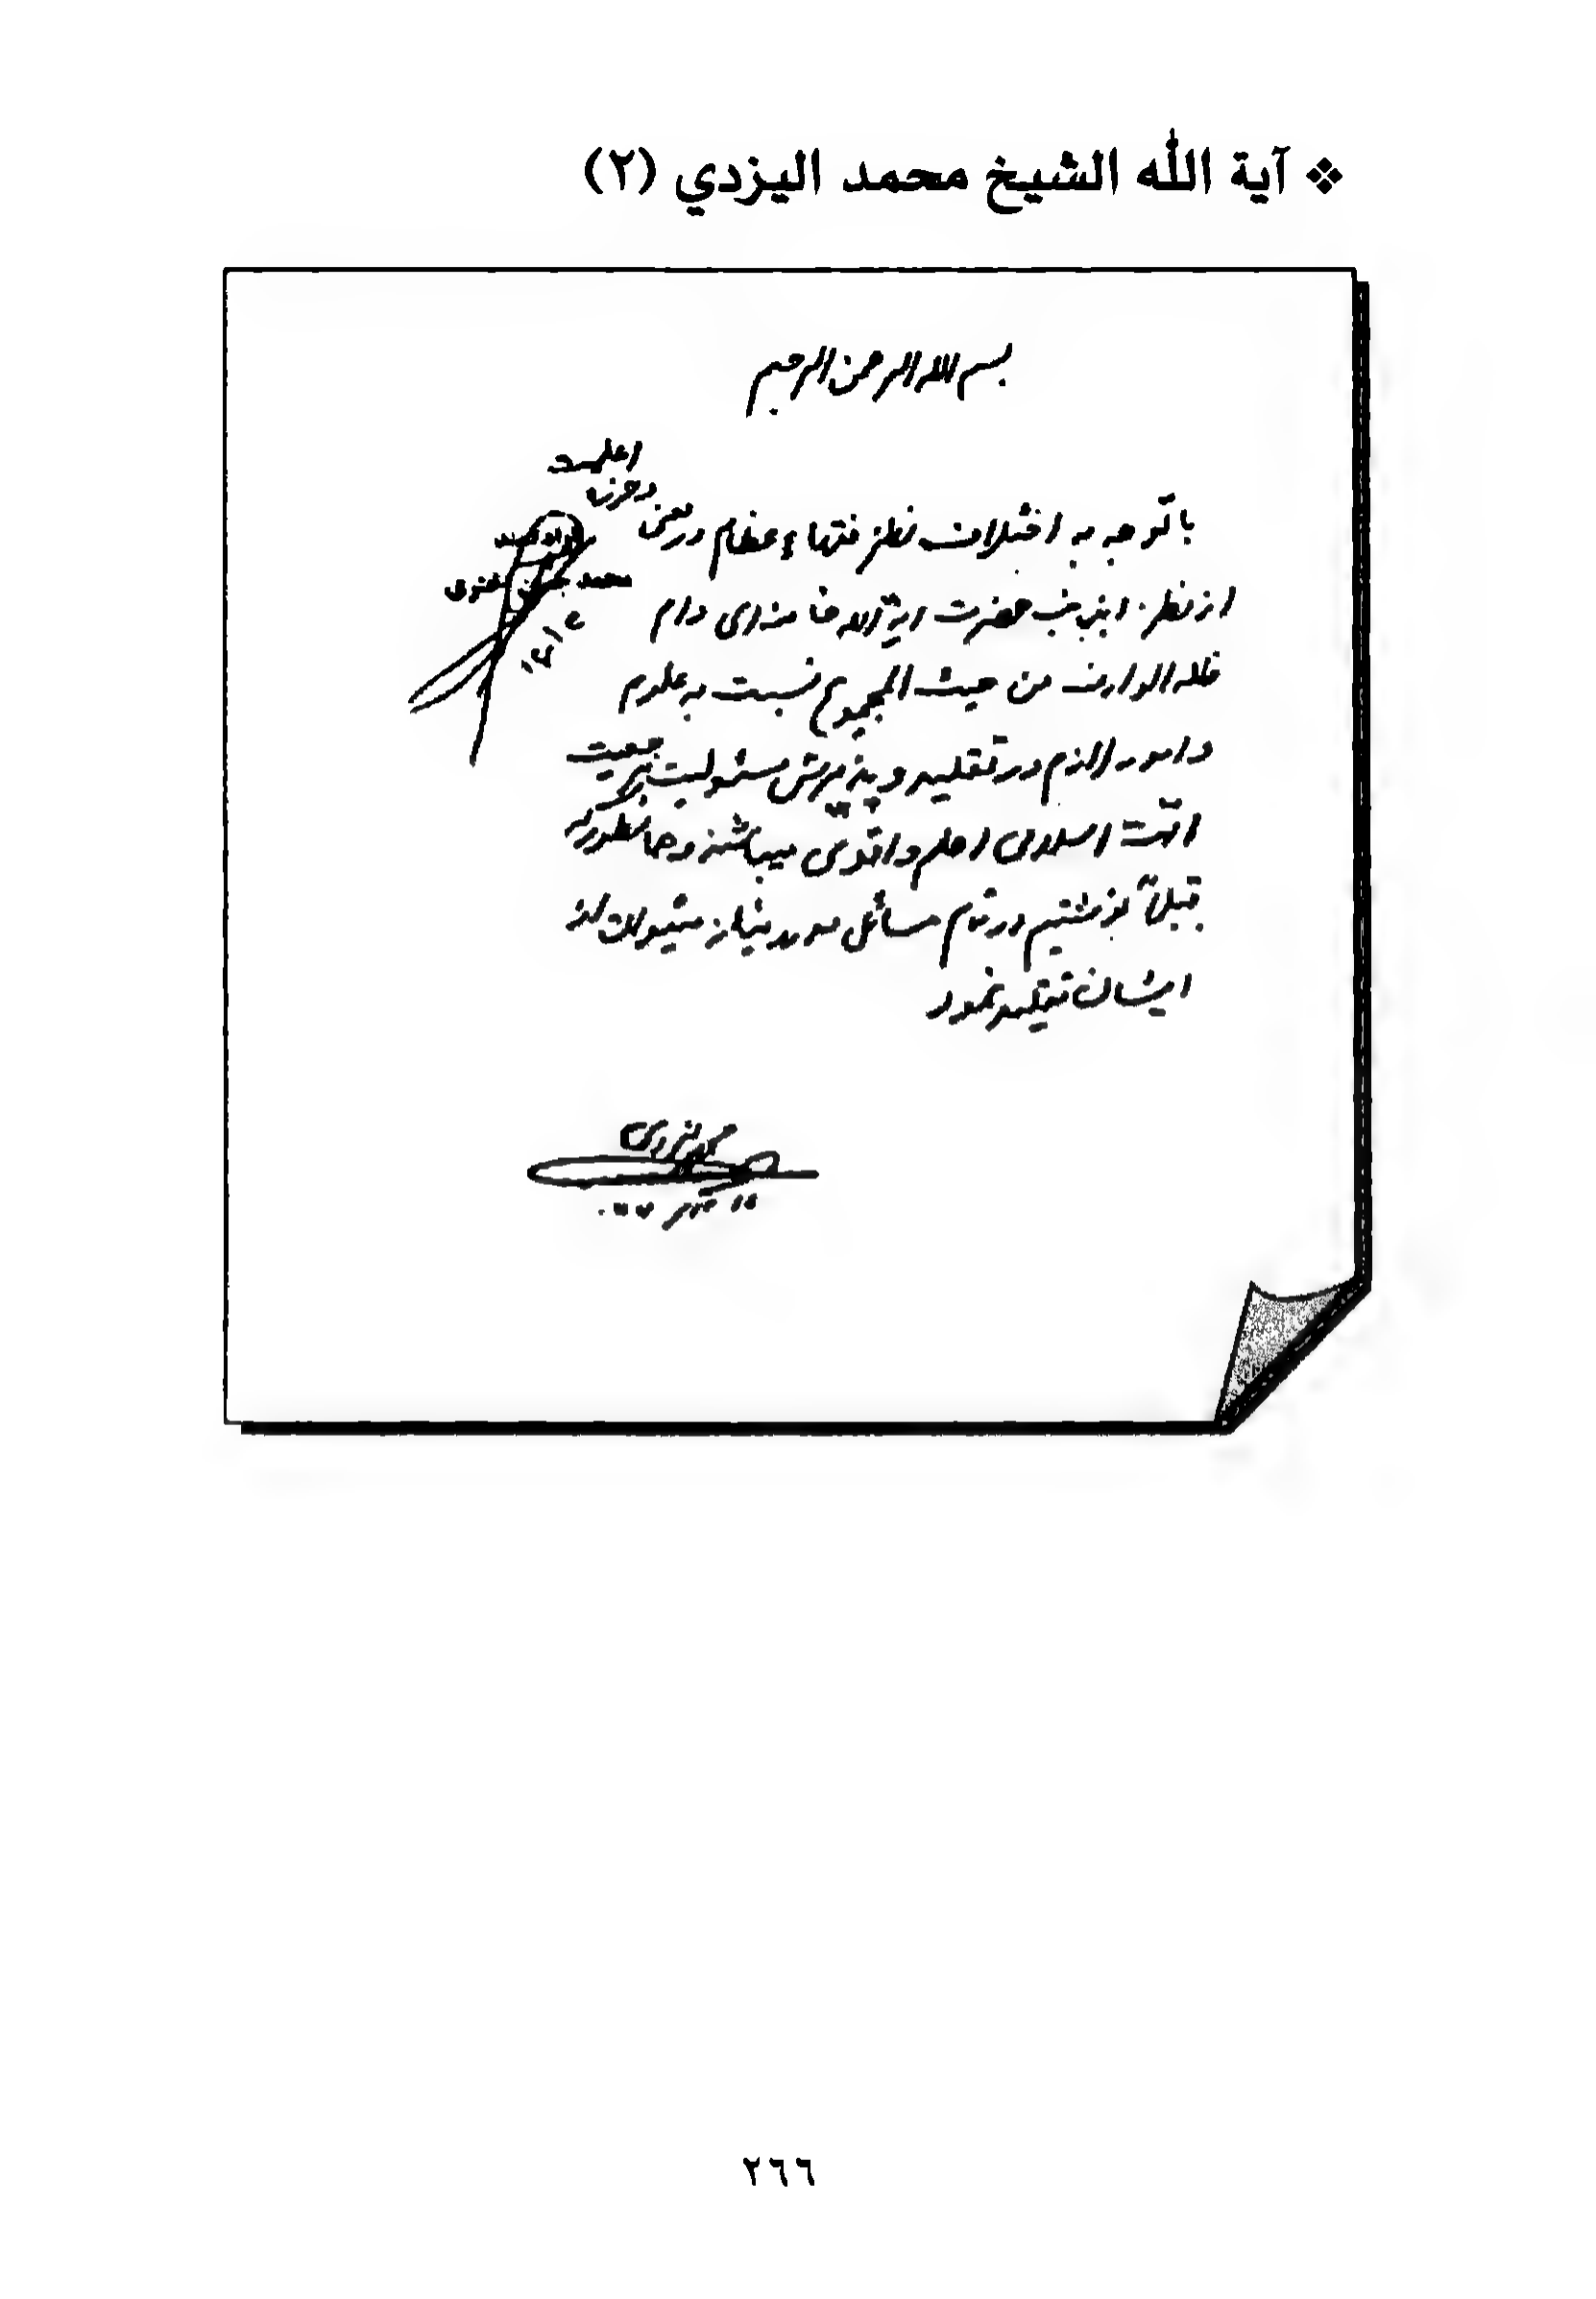 ❖ آية الله الشيخ محمد اليزدي (٢)
بسم الله الرحمن الرحیم
با توجه به اختلاف نظر فقهاء عظام در معنی
اعلمیت
از نظر اینجانب حضرت آیة الله خامنه‌ای دام
ظله الوارف من حیث المجموع نسبت به علوم
و امور لازم در تقلید و پذیرش مسئولیت مرجعیت
امت اسلامی اعلم و اقوی میباشند و همانطور که
قبلاً نوشتیم در تمام مسائل مورد نیاز میتوان از
ایشان تقلید نمود
محمد یزدی
٢٦٦